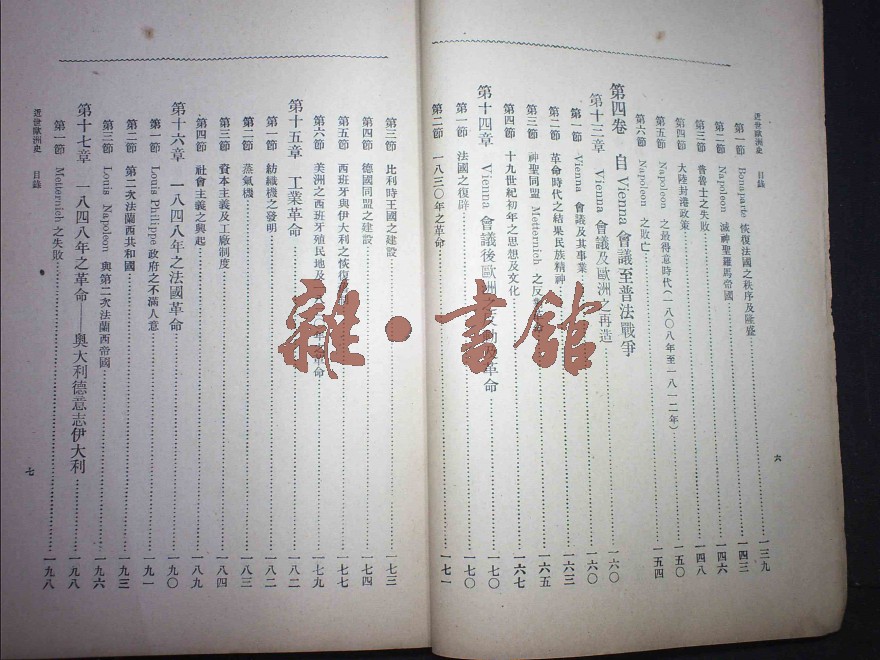 近世歐洲史　目錄
第一節　Bonaparte 恢復法國之秩序及隆盛……一三九
第二節　Napoleon 滅神聖羅馬帝國……一四三
第三節　普魯士之失敗……一四六
第四節　大陸封港政策……一四八
第五節　Napoleon 之最得意時代(一八〇八年至一八一二年)……一五〇
第六節　Napoleon 之敗亡……一五四
第四卷　自 Vienna 會議至普法戰爭……一六〇
第十三章　Vienna 會議及歐洲之再造……一六〇
第一節　Vienna 會議及其事業……一六三
第二節　革命時代之結果民族精神……一六五
第三節　神聖同盟 Metternich 之反……一六七
第四節　十九世紀初年之思想及文化
第十四章　Vienna 會議後歐洲　革命……一七〇
第一節　法國之復辟……一七〇
第二節　一八三〇年之革命……一七一
六
第三節　比利時王國之建設……一七三
第四節　德國同盟之建設……一七四
第五節　西班牙與伊大利之恢復……一七七
第六節　美洲之西班牙殖民地及　革命……一七九
第十五章　工業革命……一八二
第一節　紡織機之發明……一八二
第二節　蒸氣機……一八三
第三節　資本主義及工廠制度……一八四
第四節　社會主義之興起……一八九
第十六章　一八四八年之法國革命……一九〇
第一節　Louis Philippe 政府之不滿人意……一九一
第二節　第二次法蘭西共和國……一九三
第三節　Louis Napoleon 與第二次法蘭西帝國……一九六
第十七章　一八四八年之革命——奧大利德意志伊大利……一九八
第一節　Metternich 之失敗……一九八
近世歐洲史　目錄
七
雜·書館